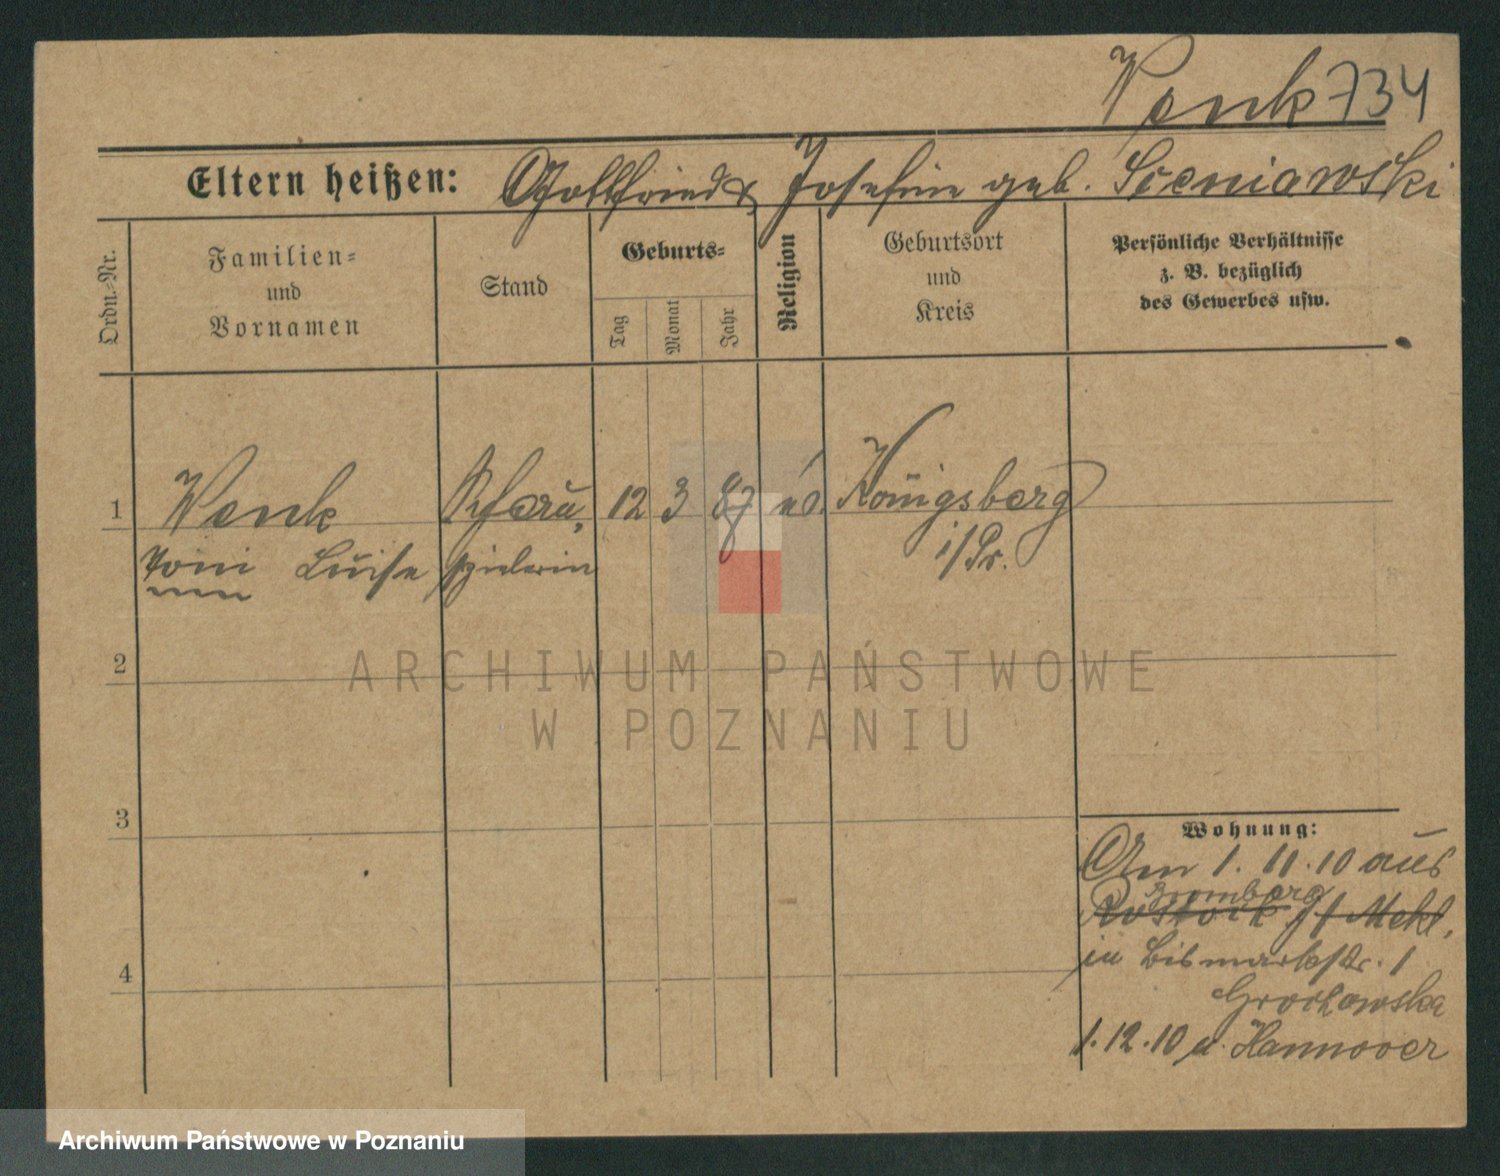 Wenk 734
Eltern heißen: Gottfried & Josefine geb. Sceniawski
Ordn.-Nr.
Familien-
und
Vornamen
Stand
Geburts-
Tag
Monat
Jahr
Religion
Geburtsort
und
Kreis
Persönliche Verhältnisse
z. B. bezüglich
des Gewerbes usw.
1 Wenk Schau, 12 3 87 Königsberg
Toni Luise spielerin i/Pr.
2
3
4
Wohnung:
Am 1. 11. 10 aus
Bromberg
Rostock i/Mekl,
in Bismarkstr. 1
Grochowska
1.12.10 n. Hannover
ARCHIWUM PAŃSTWOWE
W POZNANIU
Archiwum Państwowe w Poznaniu